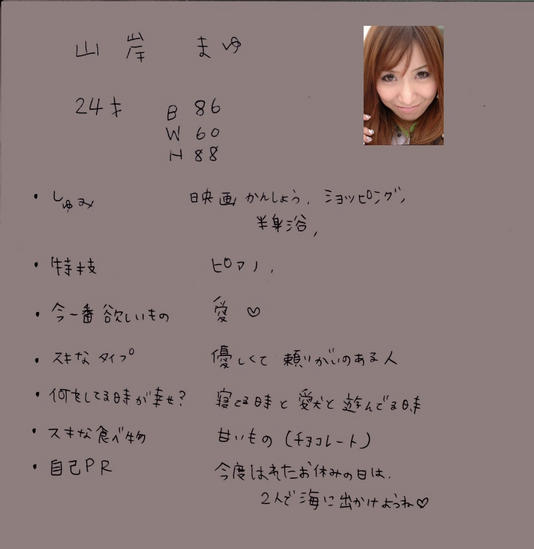 山岸 まゆ
24才
B 86
W 60
H 88
・しゅみ 映画かんしょう、ショッピング、
半身浴、
・特技 ピアノ、
・今一番欲しいもの 愛♡
・スキなタイプ 優しくて頼りがいのある人
・何をしてる時が幸せ? 寝てる時と愛犬と遊んでる時
・スキな食べ物 甘いもの(チョコレート)
・自己PR 今度はれたお休みの日は、
2人で海に出かけようね♡